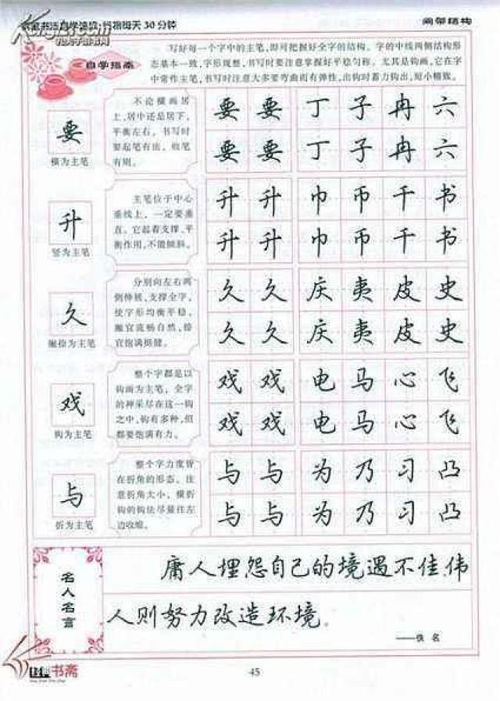 行楷每天30分钟
间架结构
自学指南
写好每一个字中的主笔,即可把握好全字的结构。字的中线两侧结构形
态基本一致,字形规整,书写时要注意掌握好平稳匀称。尤其是钩画,它在字
中常作主笔,书写时注意大多要弯曲而有弹性,出钩时蓄力钩出,短小精致。
要
横为主笔
不论横画居
上、居中还是居下,
平衡左右。书写时
要起笔有法,收笔
有则。
要 要 丁 子 冉 六
要 要 丁 子 冉 六
升
竖为主笔
主笔位于中心
垂线上,一定要垂
直。它起着支撑、平
衡作用,不能倾斜。
升 升 巾 币 千 书
升 升 巾 币 千 书
久
撇捺为主笔
分别向左右两
侧伸展,支撑全字,
使字形均衡平稳,
撇宜流畅自然,捺
宜饱满挺健。
久 久 庆 夷 皮 史
久 久 庆 夷 皮 史
戏
钩为主笔
整个字都是以
钩画为主笔,全字
的神采尽在这一钩
之中,钩有多种,但
都要饱满有力。
戏 戏 电 马 心 飞
戏 戏 电 马 心 飞
与
折为主笔
整个字力度皆
在折角的形态。注
意折角大小,横折
钩的钩法尽量往左
边收缩。
与 与 为 乃 习 凸
与 与 为 乃 习 凸
名人名言
庸人埋怨自己的境遇不佳,伟
人则努力改造环境。
——佚 名
书斋
45